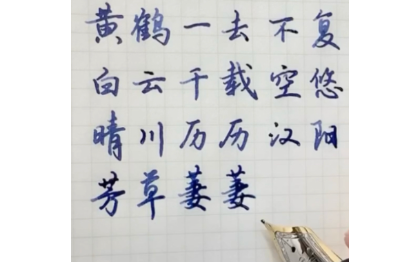 黄鹤一去不复
白云千载空悠
晴川历历汉阳
芳草萋萋